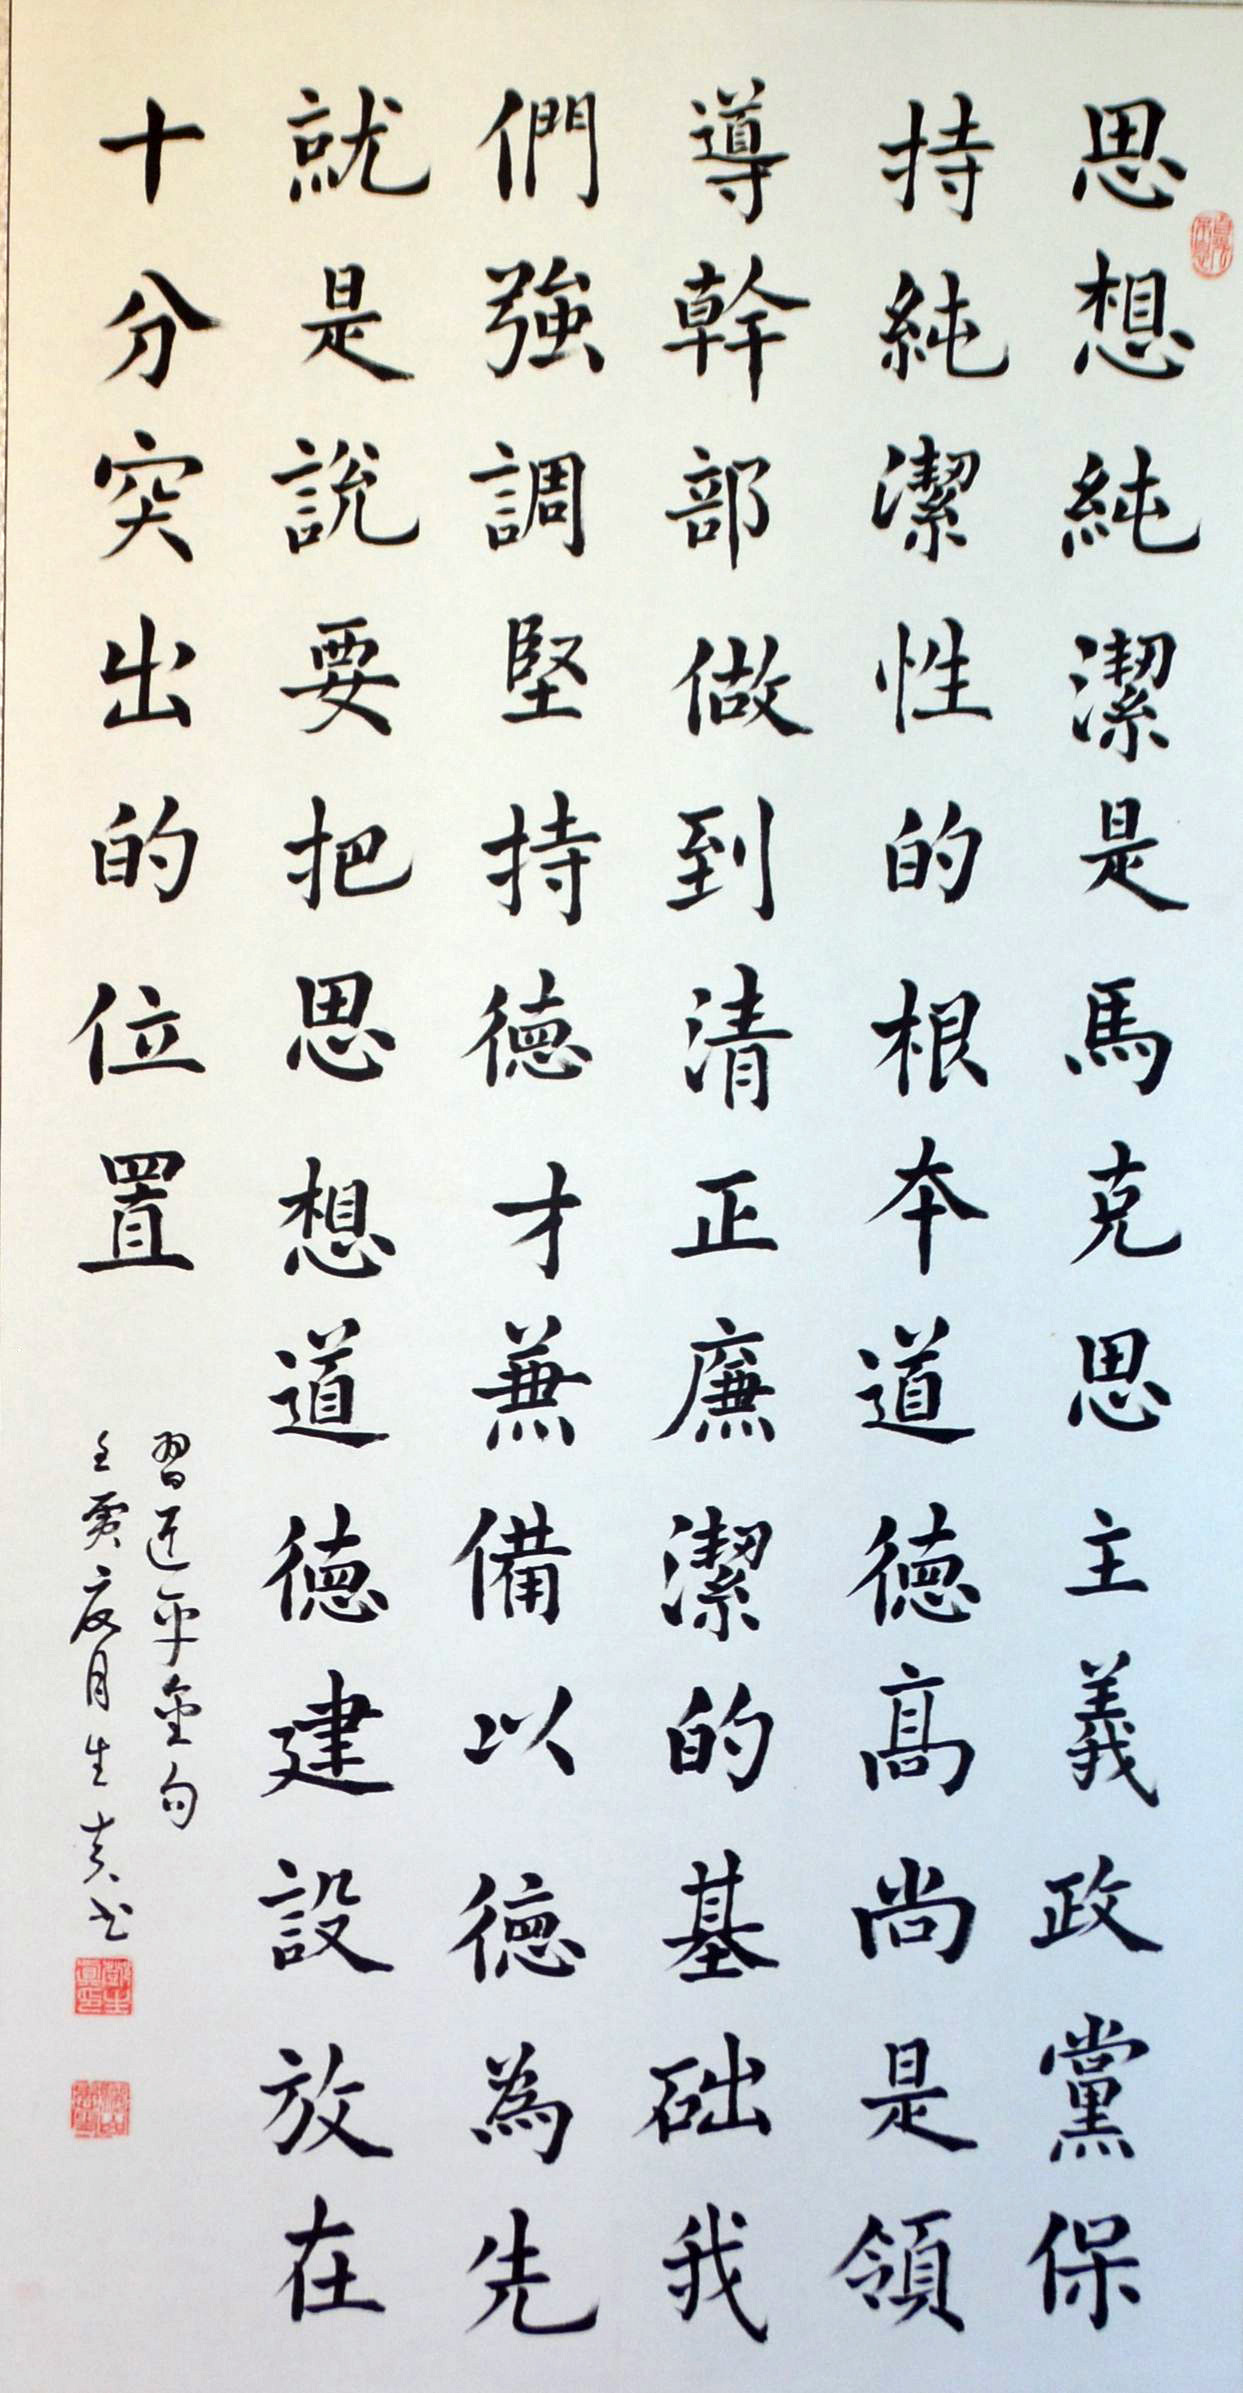 思想純潔是馬克思主義政黨保
持純潔性的根本道德高尚是領
導幹部做到清正廉潔的基础我
們強調堅持德才兼備以德為先
就是說要把思想道德建設放在
十分突出的位置
習近平金句
壬寅夏月生真书